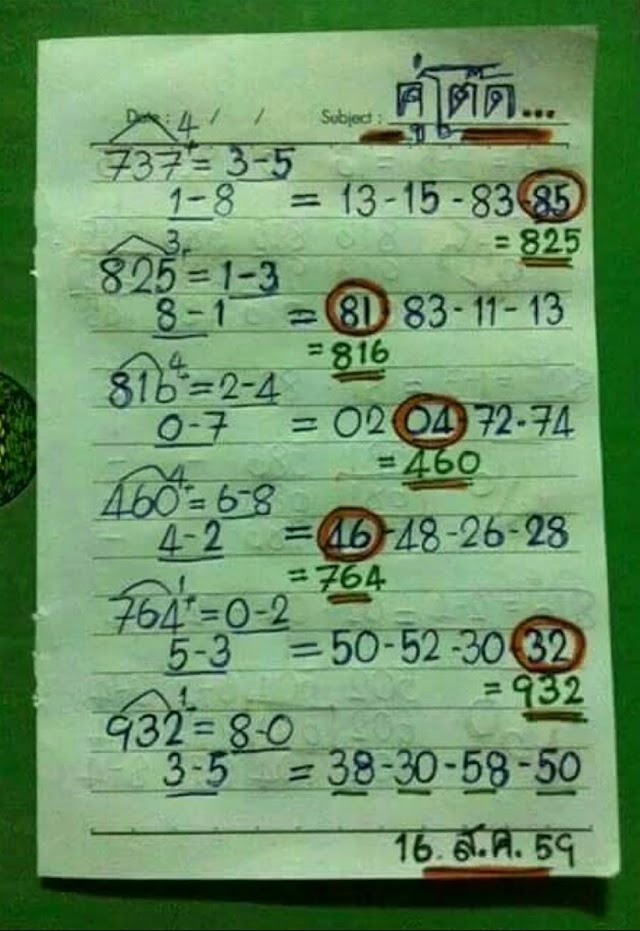 คู่โต๊ด...
Date : / / Subject :
4
737 = 3-5
1-8 = 13-15-83-85
= 825
3
825 = 1-3
8-1 = 81-83-11-13
= 816
4
816 = 2-4
0-7 = 02-04-72-74
= 460
4
460 = 6-8
4-2 = 46-48-26-28
= 764
1
764 = 0-2
5-3 = 50-52-30-32
= 932
1
932 = 8-0
3-5 = 38-30-58-50
16. ส.ค. 59